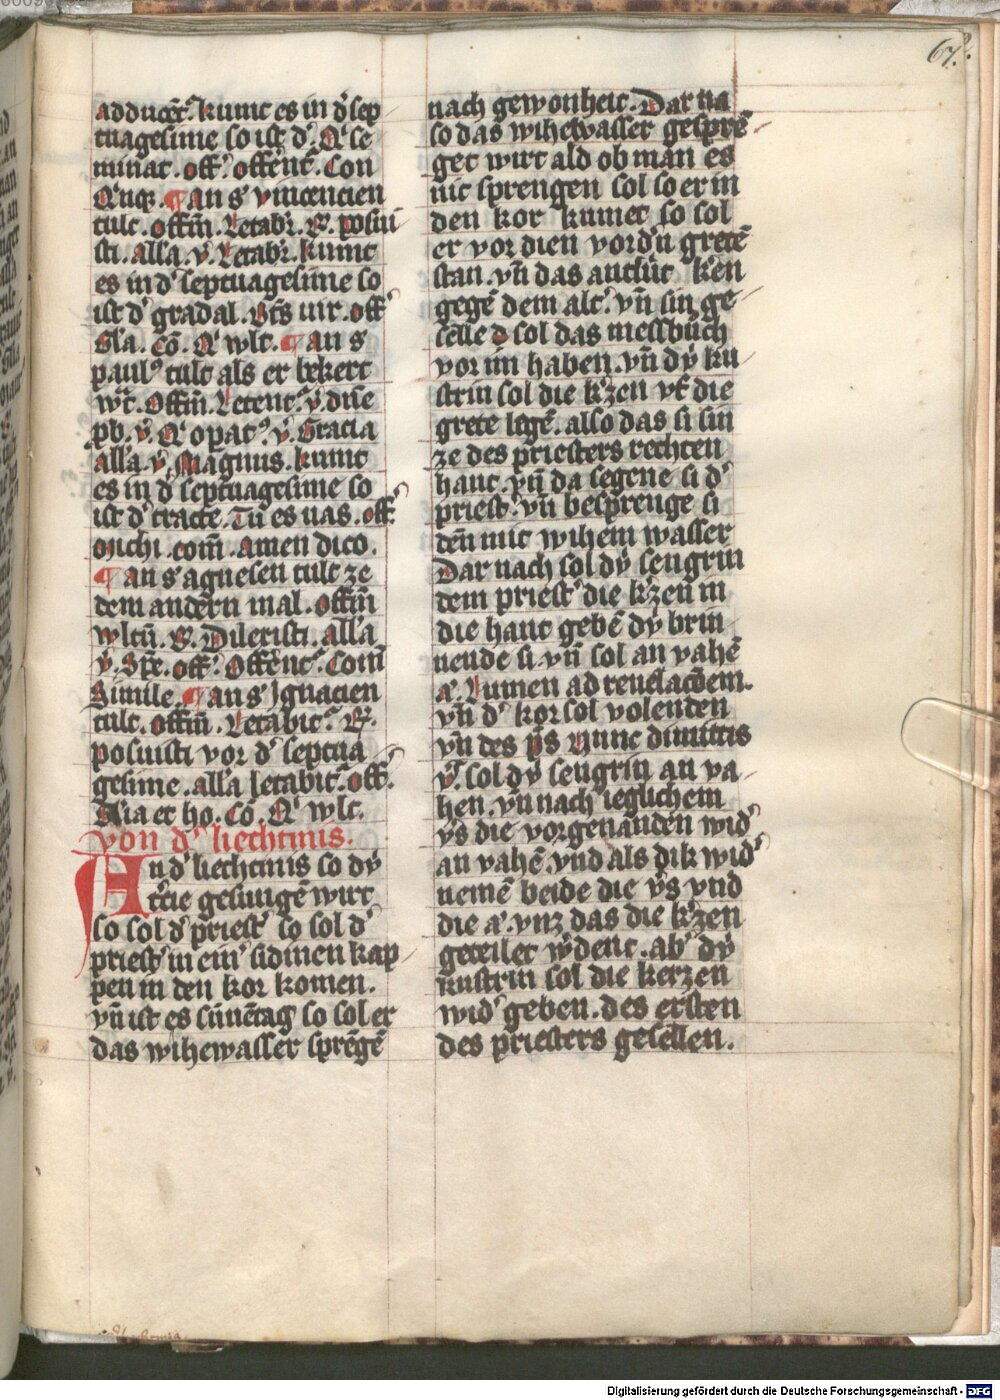 67.
adducet᷑. kumt es in d᷑ sep
tuagesime so ist d᷑. Q᷑ se
minat. off᷑. offent᷑. Con
Q᷑ uq. ¶ an s᷑ vincencien
tult. offm̄. Letab᷑r. R̄. posui
sti. all᷑a. v̄. Letab᷑r. kumt
es in d᷑ septuagesime so
ist d᷑ gradal. off᷑
Gl᷑a. Cō. Q᷑ wlt. ¶ an s᷑
paul᷑ tult als er bekert
w᷑t. Offm̄. Letent᷑. v̄. dn̄e
pb. v̄. Q᷑ opat᷑. v̄. Gracia
all᷑a. v̄. Magnus. kumt
es in d᷑ septuagesime so
ist d᷑ tracte. Tu es uas. off᷑.
michi. com̄. amen dico.
¶ an s᷑ agnesen tult ze
dem andern mal. offm̄
wltū. R̄. Dilexisti. all᷑a
v̄. Sp̄e. off᷑. Offēnt᷑. Com̄
Simile. ¶ an s᷑ Ignacien
tult. offm̄. Letabit᷑. R̄.
posuisti vor d᷑ septua
gesime. all᷑a letabit᷑. off᷑.
Gl᷑ia et ho. Cō. Q᷑ wlt.
von d᷑ liechtmis.
An d᷑ liechtmis so dy
t᷑cie gesungē wirt
so sol d᷑ priest᷑ so sol d᷑
priest᷑ in ein᷑ sidinen kap
pen in den kor komen.
vn̄ ist es sunētag so sol er
das wihewasser sprēgē
nach gewonheit. Dar na
so das wihewasser gesprē
get wirt ald ob man es
nit sprengen sol so er in
den kor kumet so sol
er vor dien vord᷑n gretē
stan. vn̄ das antlut k᷑en
gegē dem alt᷑. vn̄ sin ge
selle d sol das messbuch
vor im haben. vn̄ dy ku
strin sol die k᷑zen vf die
grete legē. also das si sin
ze des priesters rechten
hant. vn̄ da segene si d᷑
priest᷑ vn̄ besprenge si
den mit wihem wasser
Dar nach sol dy sengrin
dem priest᷑ die k᷑zen in
die hant gebē dy brin
nende si. vn̄ sol an vahē
a᷑. Lumen ad reuelacōem.
vn̄ d᷑ kor sol volenden
vn̄ des v̄s Nunc dimittis
v᷑. sol dy sengrin an va
hen. vn̄ nach ieglichem
v̄s die vorgenanden wid᷑
an vahē. vnd als dik wid᷑
nemē beide die v̄s vnd
die a᷑. vnz das die k᷑zen
geteilet w᷑dent. ab᷑ dy
kustrin sol die kerzen
wid᷑ geben. des ersten
des priesters gesellen.
Digitalisierung gefördert durch die Deutsche Forschungsgemeinschaft - DFG